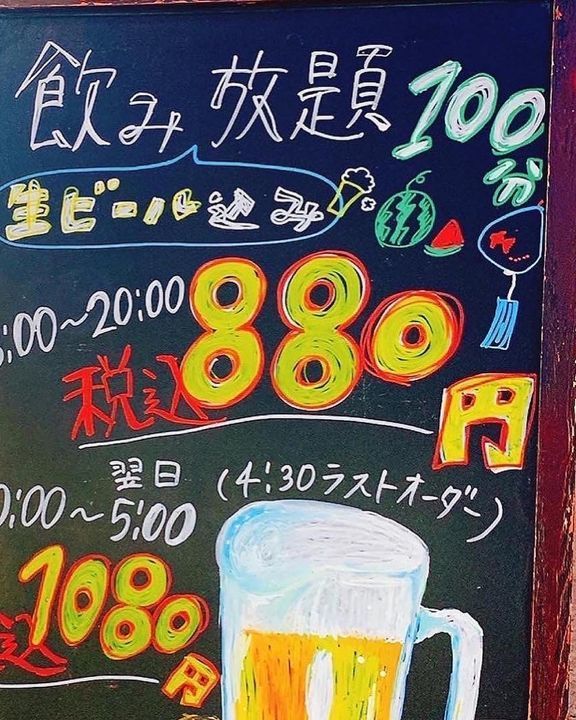 飲み放題100分
生ビール込み
:00〜20:00
税込880円
翌日
0:00〜5:00(4:30ラストオーダー)
込1080円